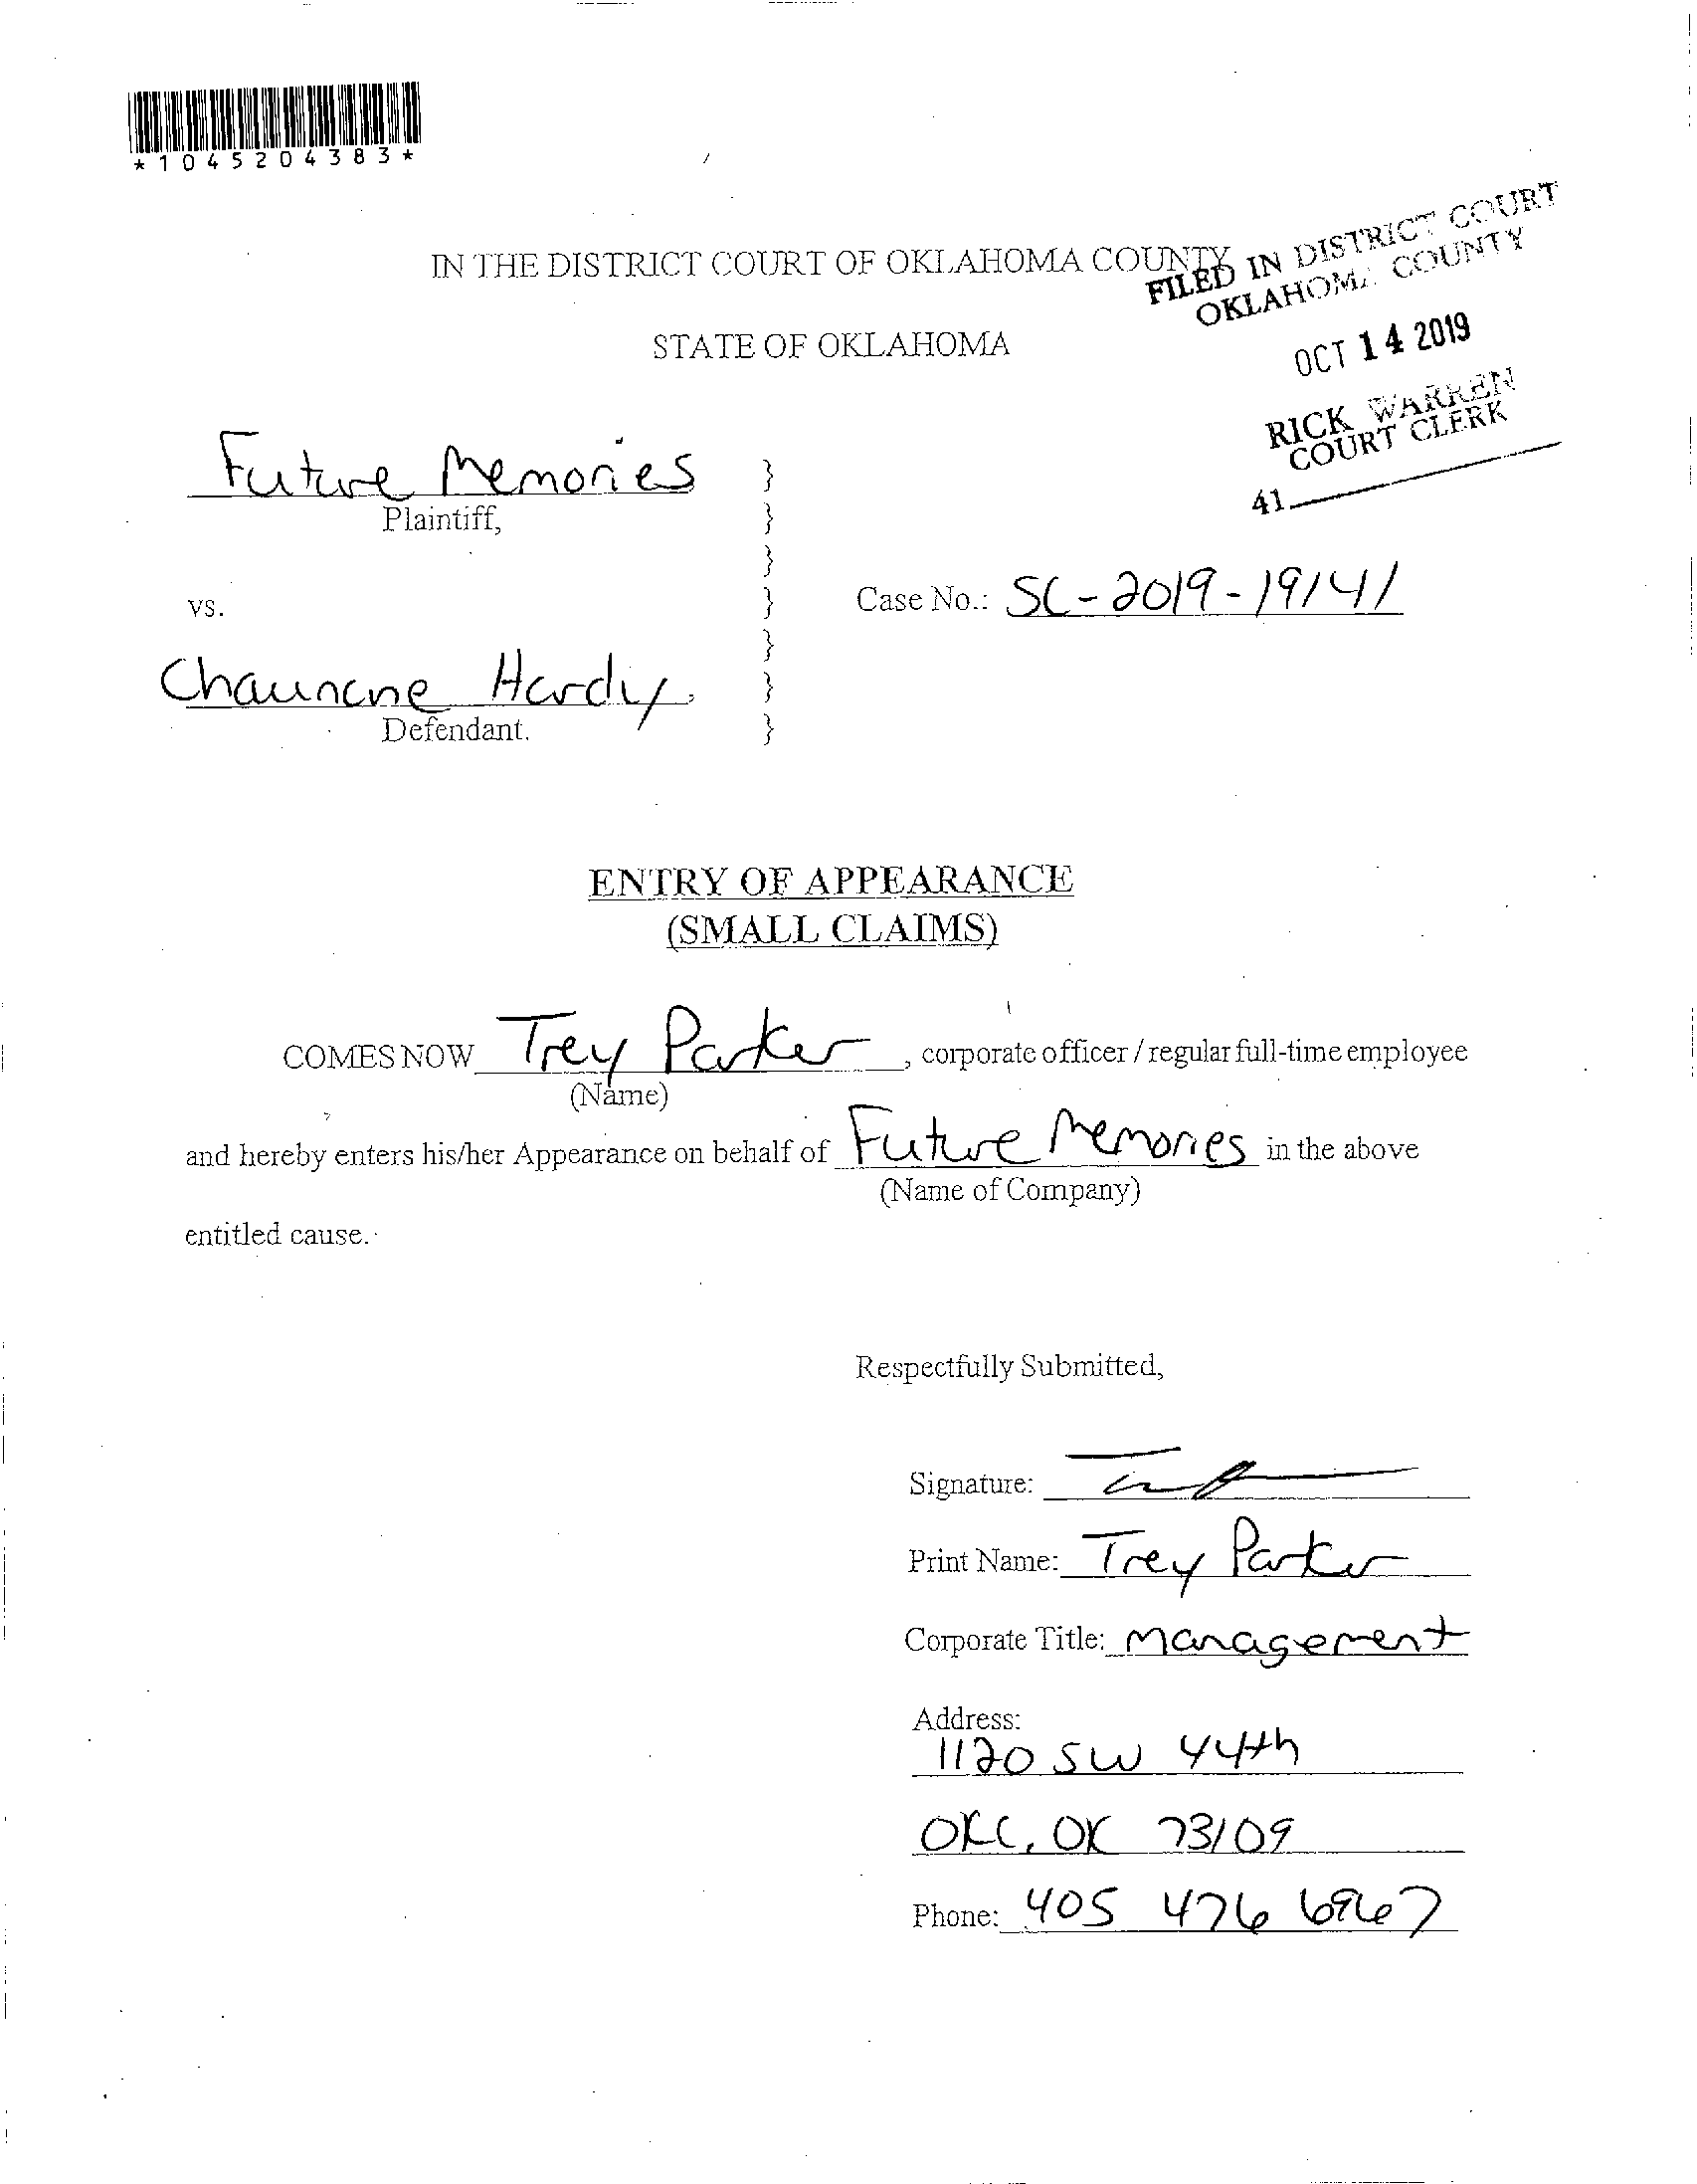 *1045204383*
IN THE DISTRICT COURT OF OKLAHOMA COUNTY
STATE OF OKLAHOMA
FILED IN DISTRICT COURT
OKLAHOMA COUNTY
OCT 14 2019
RICK WARREN
COURT CLERK
41
Future Memories
Plaintiff,
vs.
Case No.: SC-2019-19141
Hardy,
Defendant.
ENTRY OF APPEARANCE
(SMALL CLAIMS)
COMES NOW Trey Parker, corporate officer / regular full-time employee
(Name)
and hereby enters his/her Appearance on behalf of Future Memories in the above
(Name of Company)
entitled cause.
Respectfully Submitted,
Signature:
Print Name: Trey Parker
Corporate Title: Management
Address:
1120 SW 44th
OKC, OK 73109
Phone: 405 476 6967